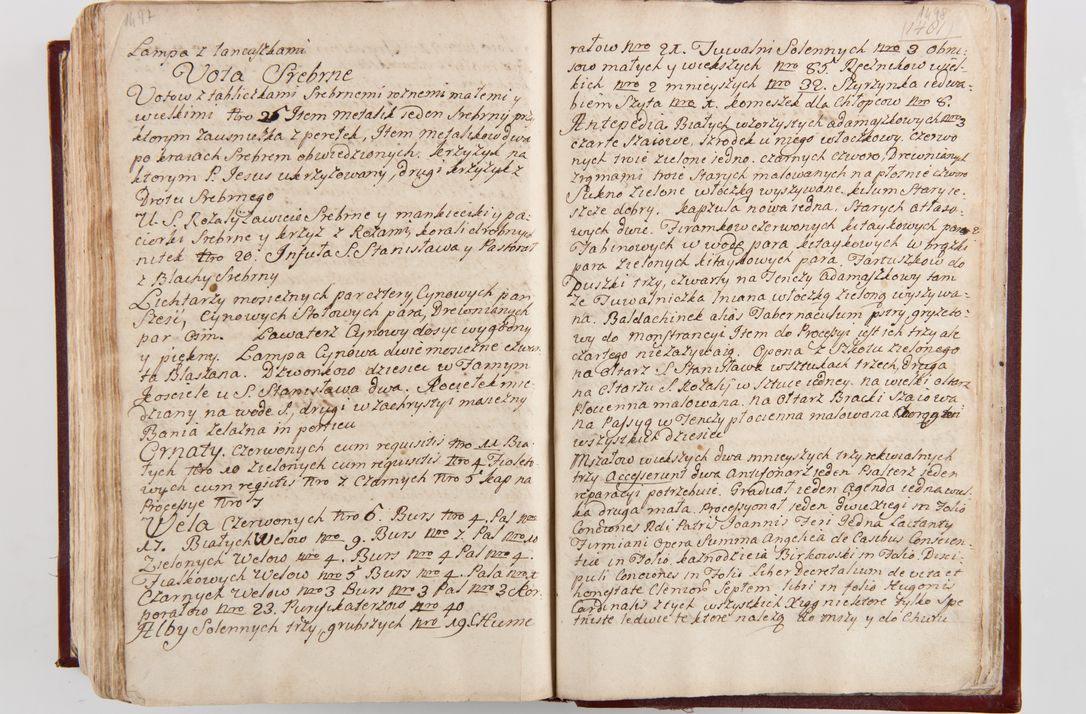 1497
Lampa z łancuszkami
Vota Srebrne
Votow z tabliczkami Srebrnemi roznemi małemi y
wielkimi Nro 26 Item metalik ieden Srebrny przy
ktorym Zausniczka z perełek, Item metalikow dwa
po kraiach Srebrem obwiedzionych. krzyżyk na
ktorym P. Jesus ukrzyżowany, drugi krzyżyk z
Drotu Srebrnego
U S. Rozalij Zawicie Srebrne y mankieciki y pa-
ciorki Srebrne y krzyż z Rozami, korali drobnych
nitek Nro 20. Infuła S. Stanisława y Pastorał
z Blachy Srebrny
Lichtarzy mosiężnych par cztery Cynowych par
Sześć, Cynowych Stołowych para, Drewnianych
par Osm. Lawaterz Cynowy dosyc wygodny
y piękny. Lampa Cynowa dwie mosiezne czwar-
ta Blaszana. Dzwonkow dziesiec w Farnym
kosciele u S. Stanisława dwa. Kociełek mie-
dziany na wode S. drugi w Zachrystyi mosiezny
Bania żelazna in porticu
Ornaty. Czerwonych cum requisitis Nro 11 Bia-
łych Nro 10 zielonych cum requisitis Nro 4. Fioleto-
wych cum reqitis Nro 7 Czarnych Nro 5 kap na
Processye Nro 7
Vela Czerwonych Nro 6. Burs Nro 4. Pal Nro
17. Białych Welow Nro 9. Burs Nro 7. Pal Nro 10
Zielonych Welow Nro 4. Burs Nro 4 Pal Nro 4.
Fiałkowych Welow Nro 5 Burs Nro 4. Pala Nro X
Czarnych Welow Nro 3 Burs Nro 3 Pal Nro 3 Kor-
porałow Nro 23. Puryfikaterzow Nro 40
Alby Solennych trzy, grubszych Nro 19. Hume
1498
rałow Nro 2X. Tuwalni Solennych Nro 3 Obru-
sow małych y wiekszych Nro 85. Ręcznikow wiel-
kich Nro 2 mnieyszych Nro 32. Skrzynka iedwa-
biem Szyta Nro X. komeszek dla Chłopcow Nro 6.
Antepedia Białych wzorzystych adamaszkowych Nro 3
czarte Szatowe, Szrodek u niego włoczkowy. Czerwo
nych troie zielone iedno. czarnych czworo, Drewnianych
z rąmami troie Starych malowanych na płotnie czworo
Sukno zielone włoczką wyszywane. kilum Stary ie-
szcze dobry. kapzula nowa iedna, Starych atłaso-
wych dwie. Firamkow czerwonych kitaykowych par 2
Tabinowych w wode para kitaykowych w brązki
para Zielonych kitaykowych para. Fartuszkow do
Puszki trzy, czwarty na Tenczy adamaszkowy tam
że Tuwalniczka lniana włoczką zieloną wyszywa-
na. Baldachinek alias Tabernaculum ptry gryzeto-
wy do monstrancyi Item do Processyi iest ich trzy ale
czartego niezażywaią. Opona z Szkołu zielonego
na Ołtarz S. Stanisława w sztukach trzech, druga
na Ołtarzu S. Rozalij w Sztuce iedney. na wielki ołtarz
Płocienna malowana. na Ołtarz Bracki Szaiowa
na Passyą w Tenczy płocienna malowana Chorągwi
wszystkich Dziesiec
Mszałow wiekszych dwa mnieyszych trzy rekwialnych
trzy Accesserunt dwa Antifonarz ieden Psałterz ieden
reparacyi potrzebuie. Graduał ieden agenda iedna wiel-
ka druga mała. Processyonał ieden dwie Xięgi in Folio
Conciones Rdi Patris Joannis Feri Jedna Lactanty
Firmiani Opera Summa Angelica de Casibus Conscien-
tiæ in Folio. kaznodzieia Birkowski in Folio. Disci-
puli Conciones in Folio Liber Decretalium de vita et
honestate Clericorũ Septem libri in folio Hugonis
Cardinalis z tych wszystkich Xiąg niektore tylko Spe-
tniste ledwie te ktore należą do mszy y do Churu